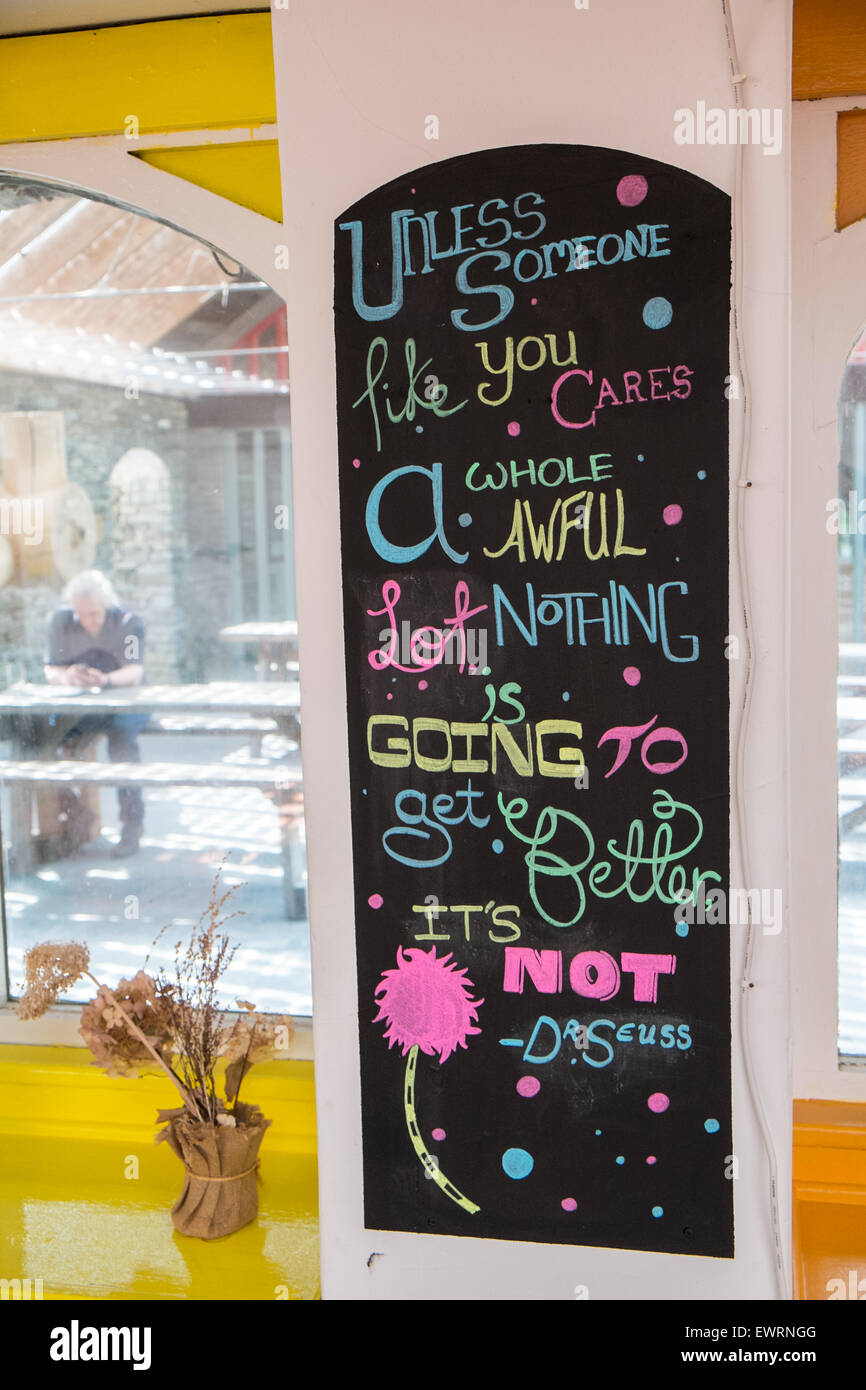 UNLESS
SOMEONE
like you
CARES
a WHOLE
AWFUL
Lot. NOTHING
is
GOING TO
get Better.
IT'S
NOT
-DR SEUSS
alamy
Image ID: EWRNGG
www.alamy.com